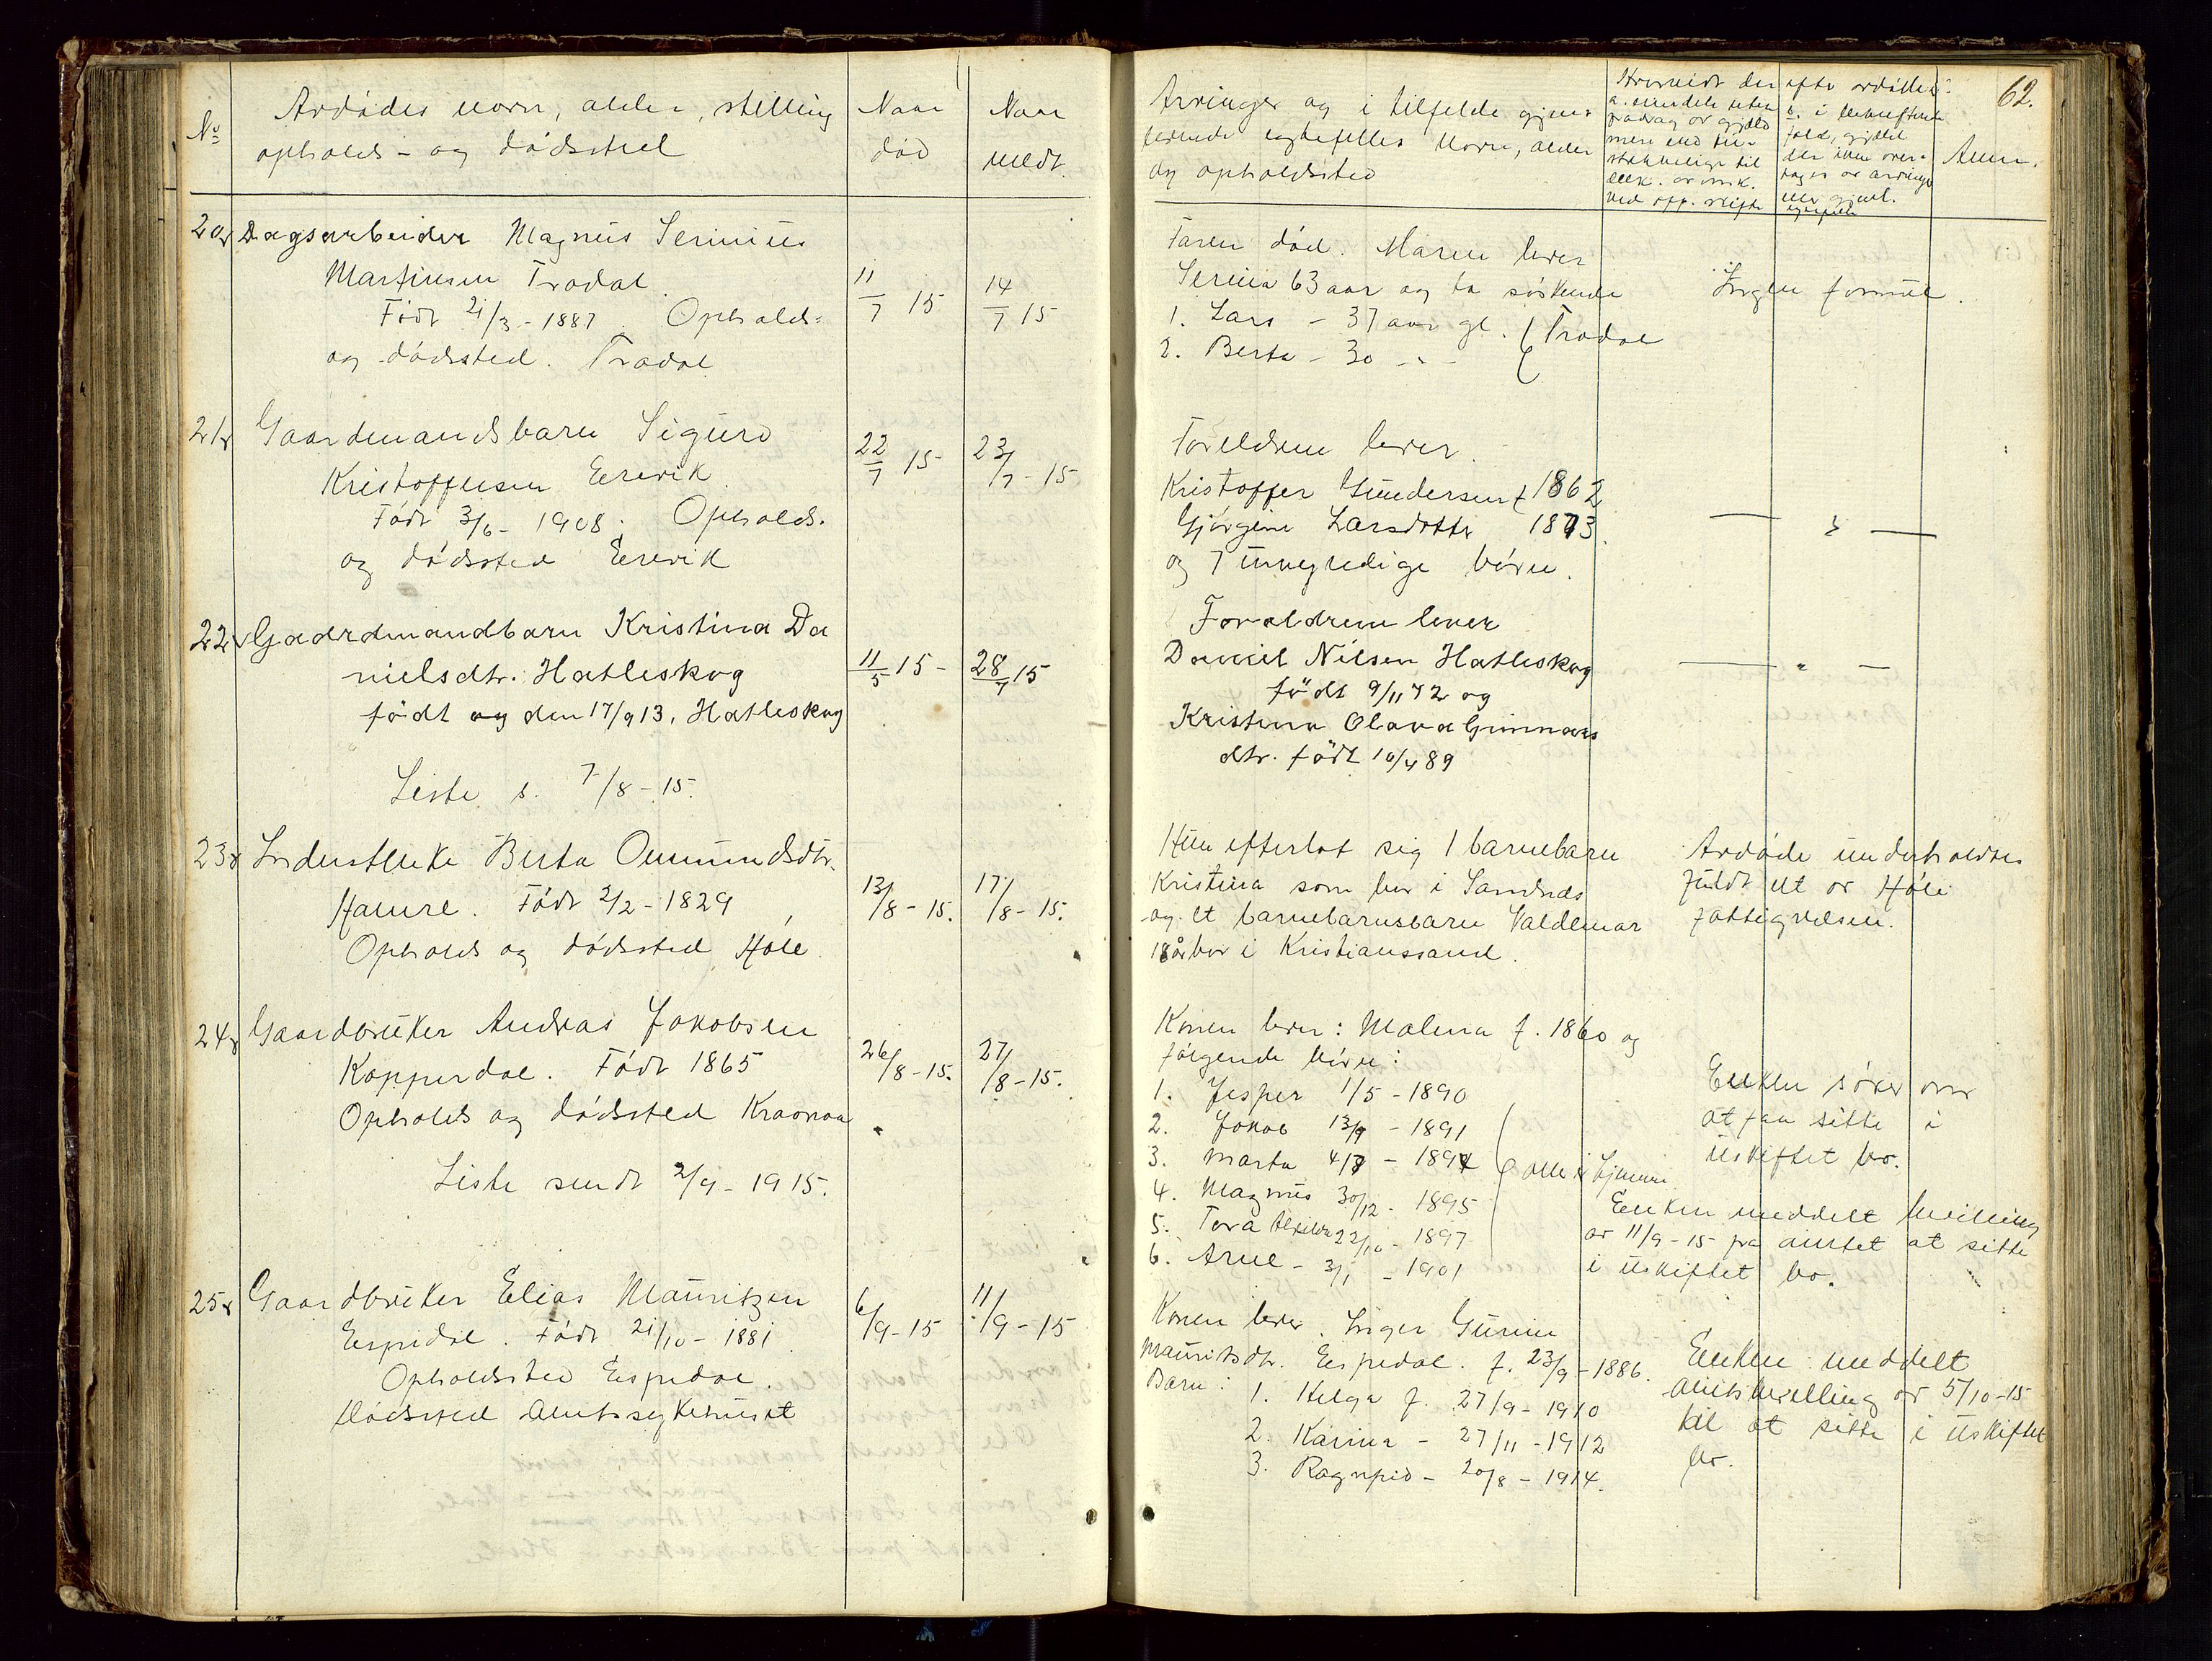 62.
No
Avdødes navn, alder, stilling
opholds- og dødssted
Naar
død
Naar
meldt.
Arvinger og i tilfelde gjen-
levende egtefelles navn, alder
og opholdssted
Hvorvidt der efter avdøde:
Anm.
20
Dagsarbeider Magnus Serinius
Martinsen Tradal
Født 21/3 - 1887. Opholds-
og dødssted. Tradal
11/7 15
14/7 15
Faren død. Maren lever
Serina 63 aar og to søskende
1. Lars - 37 aar gl. Tradal
2. Berta - 30 - " -
Ingen formue.
21
Gaardmandsbarn Sigurd
Kristoffersen Eirevik.
Født 3/6 - 1908. Opholds-
og dødssted Eirevik
22/7 15
23/7 - 15
Foreldrene lever.
Kristoffer Gundersen f 1862
Gjørgine Larsdotter 1873.
og 7 umyndige børn.
— " —
22
Gaardmandbarn Kristina Da
nielsdtr. Hatleskog
født og den 17/9 13, Hatleskog
11/5 15 -
28/7 15
Foraldrene lever
Daniel Nilsen Hatleskog
født 9/11 72 og
Kristina Olava Gunnars
dtr. født 10/4 89
— " —
Liste s. 7/8 - 15.
23
Inderstenke Berta Ommundsdtr.
Haure. Født 2/2 - 1829
Opholds og dødssted Høle.
13/8 - 15.
17/8 - 15.
Hun efterlot sig 1 barnebarn
Kristina som bor i Sandnes
og et barnebarnsbarn Valdemar
18 år bor i Kristianssand.
Avdøde underholdtes
fuldt ut av Høle
fattigvesen.
24
Gaardbruker Andreas Jakobsen
Kopperdal. Født 1865
Opholds og dødssted Kraavaa
26/8 - 15.
27/8 - 15.
Liste sendt 2/9 - 1915.
Konen lever: Malena f. 1860 og
følgende børn:
1. Jesper 1/5 - 1890
2. Jakob 13/9 - 1891
3. Marta 4/7 - 1894
4. Magnus 30/12 - 1895
5. Tora 22/10 - 1897
6. Arne - 3/1 - 1901
alle i hjemme
Enken søker om
at faa sitte i
uskiftet bo.
Enken meddelt bevilling
av 11/9 - 15 fra amtet at sitte
i uskiftet bo.
25
Gaardbruker Elias Mauritzen
Espedal. Født 21/10 - 1881
Opholdssted Espedal.
Dødssted Amtssykehuset
6/9 - 15
11/9 - 15
Konen lever. Inger Gurine
Mauritsdtr. Espedal. f. 23/9 - 1886.
Barn: 1. Helga f. 27/9 - 1910
2. Karina - 27/11 - 1912
3. Ragnfrid - 20/8 - 1914.
Enken meddelt
amtsbevilling av 5/10 - 15
til at sitte i uskiftet
bo.